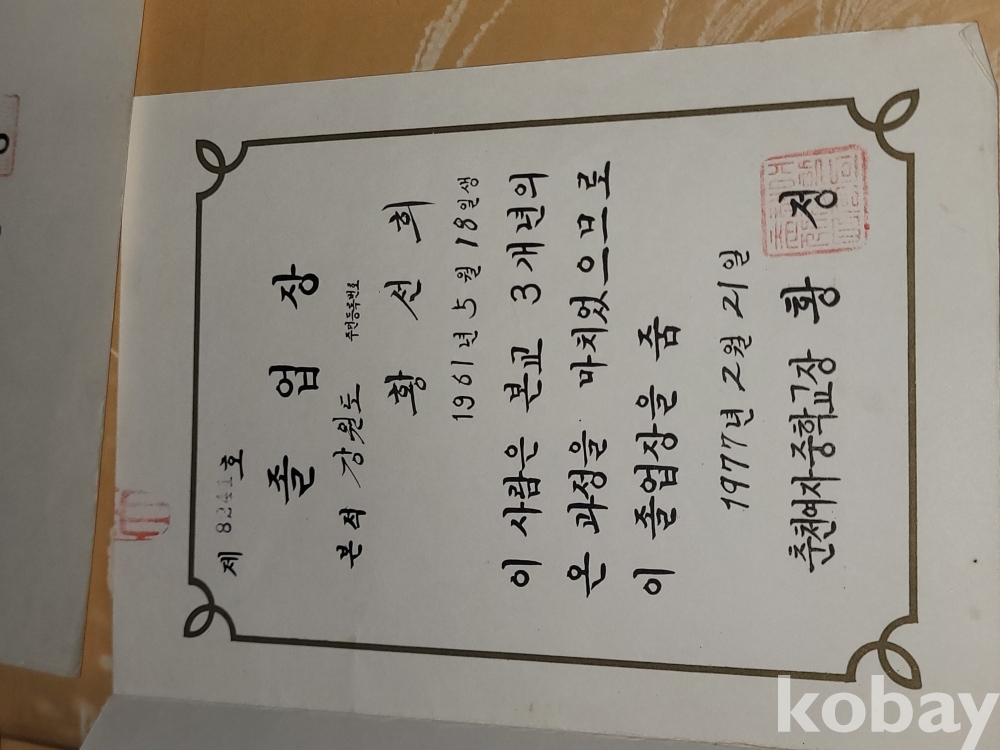 제 8241 호
졸업장
본적 강원도
주민등록번호
황선희
1961년 5월 18일생
이 사람은 본교 3개년의
온 과정을 마치었으므로
이 졸업장을 줌
1977년 2월 21일
춘천여자중학교장 황 정
kobay